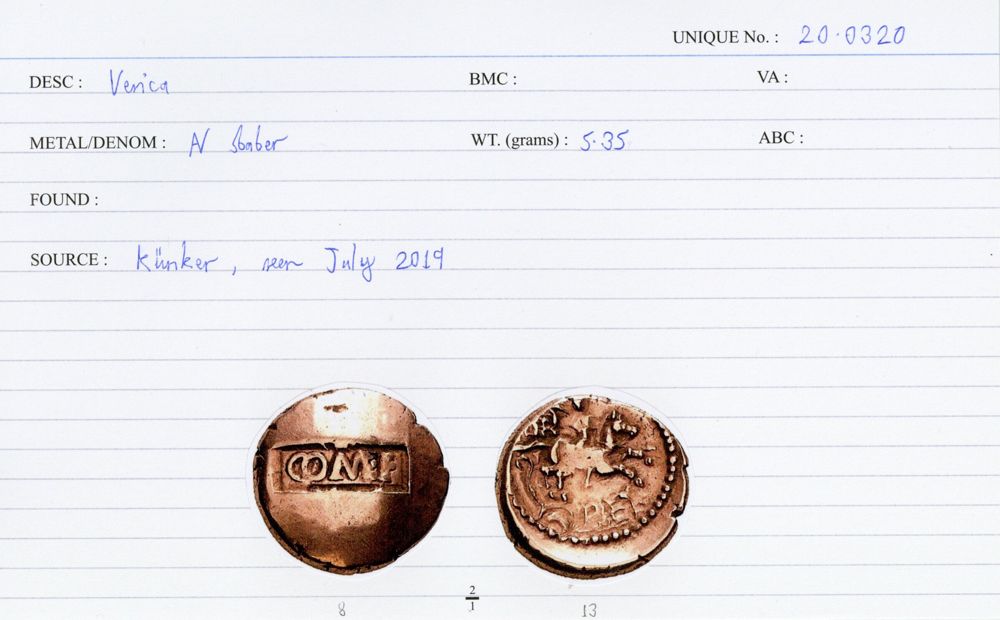 UNIQUE No. : 20·0320
DESC : Verica BMC : VA :
METAL/DENOM : AV Stater WT. (grams) : 5.35 ABC :
FOUND :
SOURCE : Künker, seen July 2019
COM·F
REX
2
8 1 13